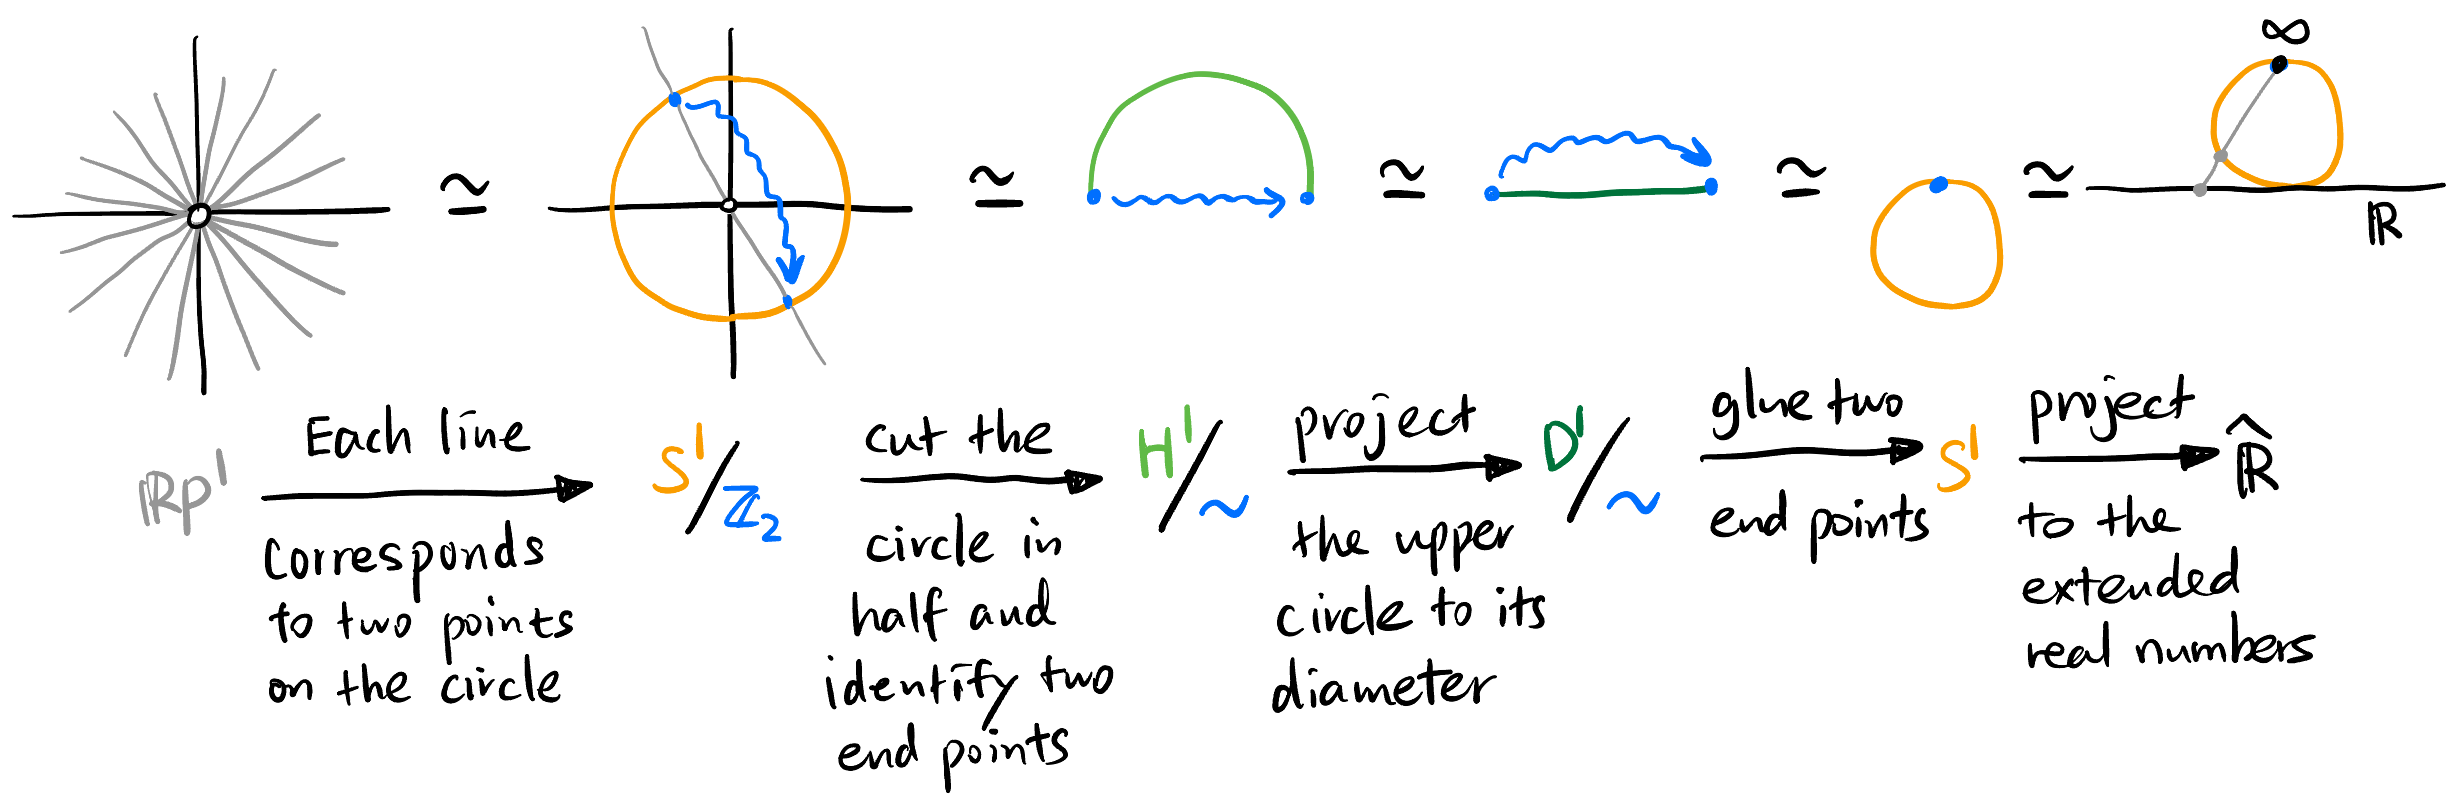 ≃ ≃ ≃ ≃ ≃ ∞
ℝ
ℝP¹
Each line
corresponds
to two points
on the circle
S¹/ℤ₂
cut the
circle in
half and
identify two
end points
H¹/∼
project
the upper
circle to its
diameter
D¹/∼
glue two
end points
S¹
project
to the
extended
real numbers
ℝ̂